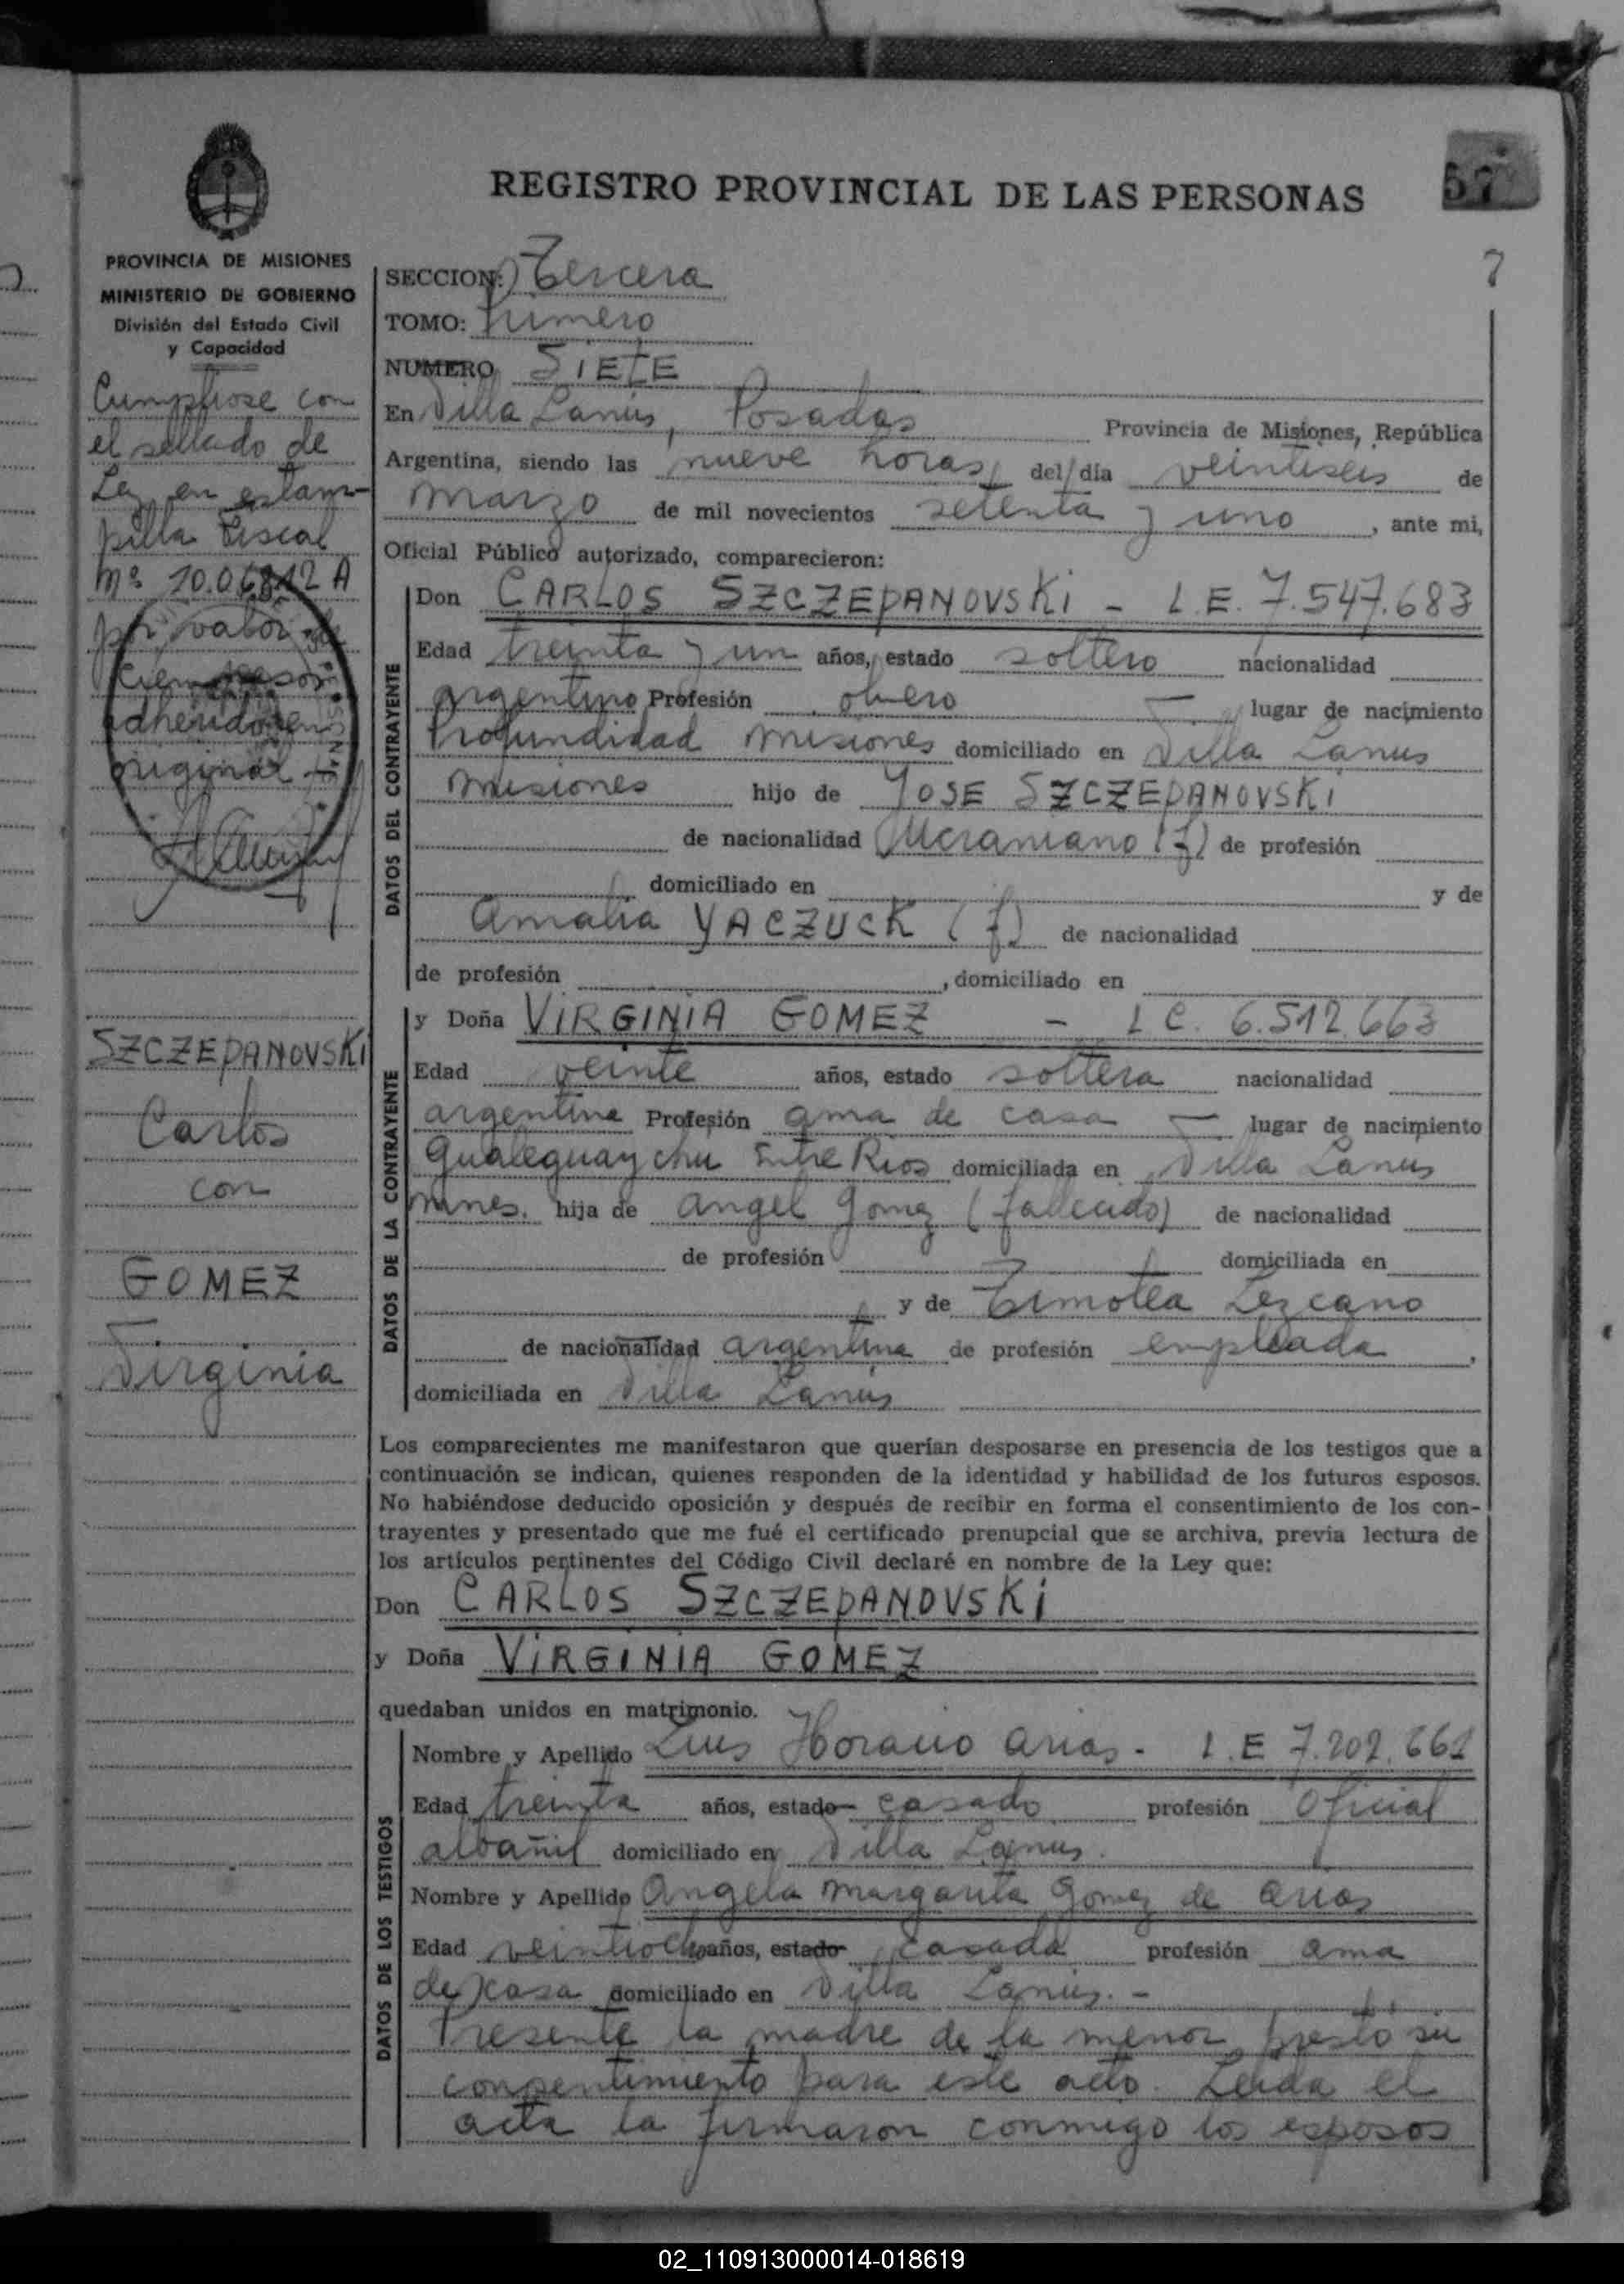 57
REGISTRO PROVINCIAL DE LAS PERSONAS
7
PROVINCIA DE MISIONES
MINISTERIO DE GOBIERNO
División del Estado Civil
y Capacidad
Cumpliose con
el sellado de
Ley en estam-
pilla fiscal
Nº 10.06812 A
por valor de
cien pesos
adherido en
original
SZCZEPANOVSKI
Carlos
con
GOMEZ
Virginia
SECCION: Tercera
TOMO: Primero
NUMERO SIETE
En Villa Lanús, Posadas Provincia de Misiones, República
Argentina, siendo las nueve horas, del día veintiseis de
marzo de mil novecientos setenta y uno, ante mi,
Oficial Público autorizado, comparecieron:
DATOS DEL CONTRAYENTE
Don CARLOS SZCZEPANOVSKi - L.E. 7.547.683
Edad treinta y un años, estado soltero nacionalidad
argentino Profesión obrero — lugar de nacimiento
Profundidad Misiones domiciliado en Villa Lanus
Misiones hijo de JOSE SZCZEPANOVSKi
de nacionalidad Ucraniano (f) de profesión
domiciliado en y de
Amalia YACZUCK (f) de nacionalidad
de profesión , domiciliado en
DATOS DE LA CONTRAYENTE
y Doña ViRGINIA GOMEZ - L C. 6.512.663
Edad veinte años, estado soltera nacionalidad
argentina Profesión ama de casa — lugar de nacimiento
Gualeguaychu Entre Rios domiciliada en Villa Lanus
Mnes. hija de Angel Gomez (fallecido) de nacionalidad
de profesión domiciliada en
y de Timotea Lezcano
de nacionalidad argentina de profesión empleada,
domiciliada en Villa Lanús
Los comparecientes me manifestaron que querían desposarse en presencia de los testigos que a
continuación se indican, quienes responden de la identidad y habilidad de los futuros esposos.
No habiéndose deducido oposición y después de recibir en forma el consentimiento de los con-
trayentes y presentado que me fué el certificado prenupcial que se archiva, previa lectura de
los artículos pertinentes del Código Civil declaré en nombre de la Ley que:
Don CARLOS SZCZEPANOVSKi
y Doña ViRGINIA GOMEZ
quedaban unidos en matrimonio.
DATOS DE LOS TESTIGOS
Nombre y Apellido Luis Horacio Arias - L.E 7.202.661
Edad treinta años, estado casado profesión Oficial
albañil domiciliado en Villa Lanus.
Nombre y Apellido Angela Margarita Gomez de Arias
Edad veintiocho años, estado casada profesión ama
de casa domiciliado en Villa Lanús. -
Presente la madre de la menor, prestó su
consentimiento para este acto. Leida el
acta la firmaron conmigo los esposos
02_110913000014-018619